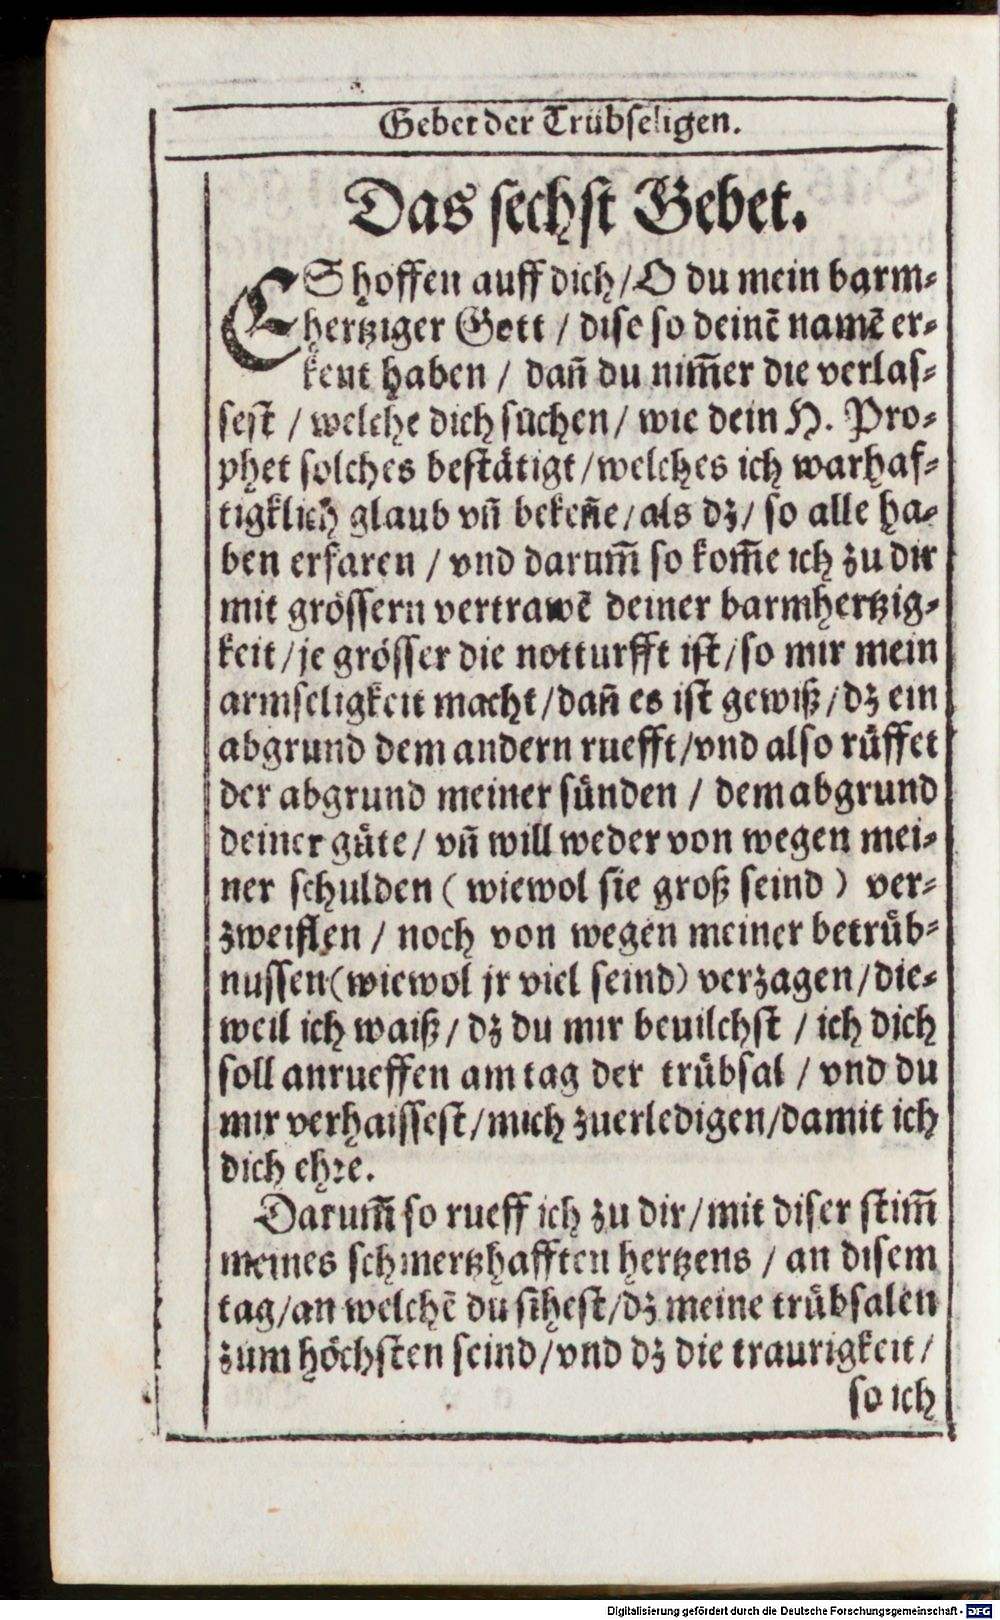 Gebet der Trübseligen.
Das sechst Gebet.
ES hoffen auff dich / O du mein barm-
hertziger Gott / dise so deinē namē er-
kent haben / dañ du nim̃er die verlas-
sest / welche dich sůchen / wie dein H. Pro-
phet solches bestätigt / welches ich warhaf-
tigklich glaub vñ bekeñe / als dz / so alle ha-
ben erfaren / vnd darum̃ so kom̃e ich zu dir
mit grössern vertrawē deiner barmhertzig-
keit / je grösser die notturfft ist / so mir mein
armseligkeit macht / dañ es ist gewiß / dz ein
abgrund dem andern ruefft / vnd also rüffet
der abgrund meiner sünden / dem abgrund
deiner güte / vñ will weder von wegen mei-
ner schulden ( wiewol sie groß seind ) ver-
zweiflen / noch von wegen meiner betrüb-
nussen (wiewol jr viel seind) verzagen / die-
weil ich waiß / dz du mir beuilchst / ich dich
soll anrueffen am tag der trübsal / vnd du
mir verhaissest / mich zuerledigen / damit ich
dich ehre.
Darum̃ so rueff ich zu dir / mit diser stim̃
meines schmertzhafften hertzens / an disem
tag / an welchē du sihest / dz meine trübsalen
zum höchsten seind / vnd dz die traurigkeit /
so ich
Digitalisierung gefördert durch die Deutsche Forschungsgemeinschaft - DFG